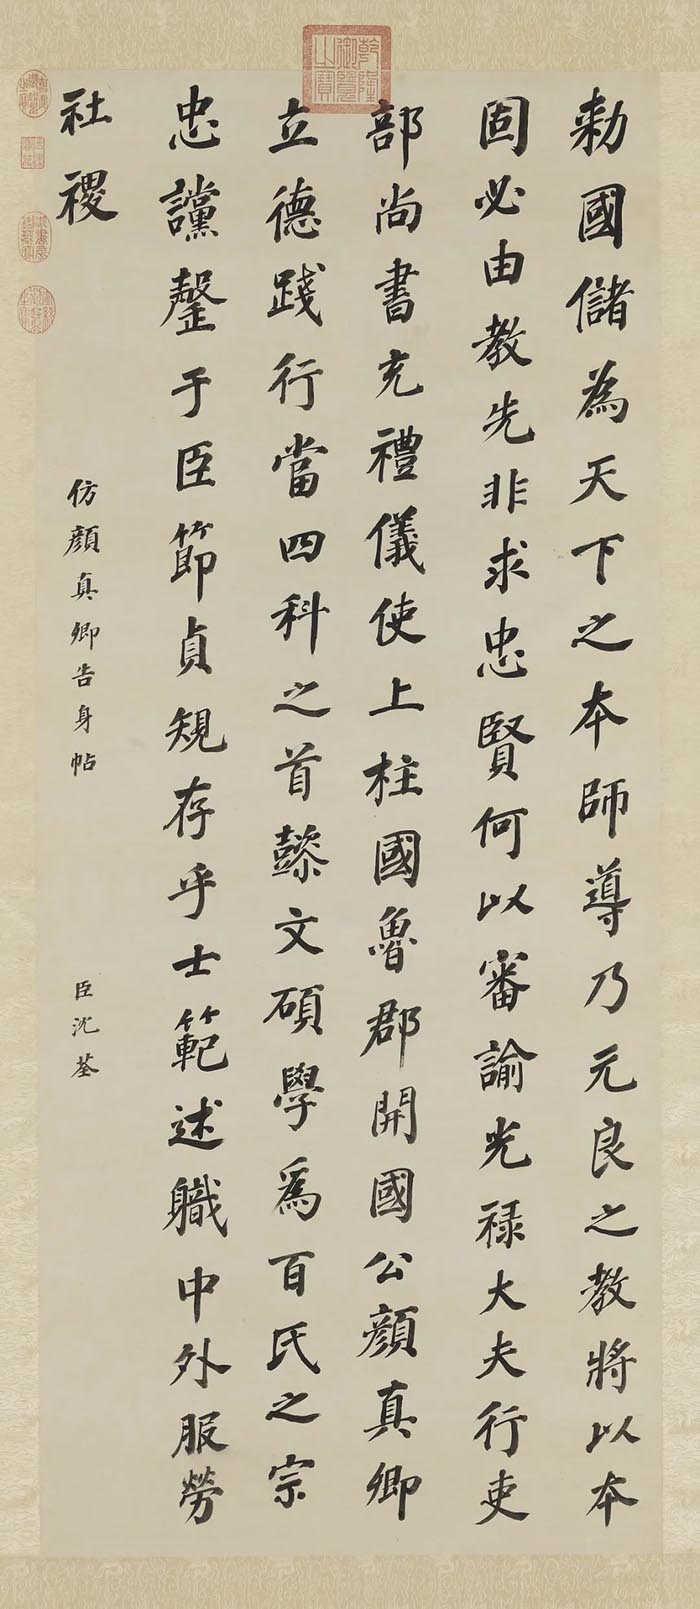 勑國儲為天下之本師導乃元良之教將以本
固必由教先非求忠賢何以審諭光禄大夫行吏
部尚書充禮儀使上柱國魯郡開國公顏真卿
立德踐行當四科之首懿文碩學為百氏之宗
忠讜罄于臣節貞規存乎士範述職中外服勞
社稷
仿顏真卿告身帖
臣沈荃
乾隆御覽之寶